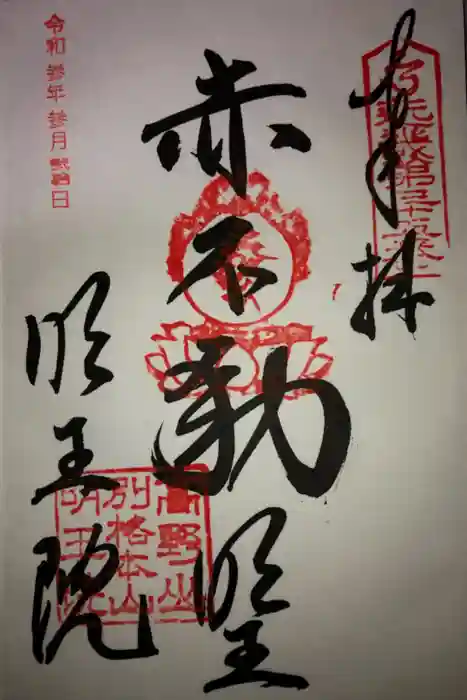 奉拝
赤不動明王
明王院
高野山
別格本山
明王院
令和参年参月日